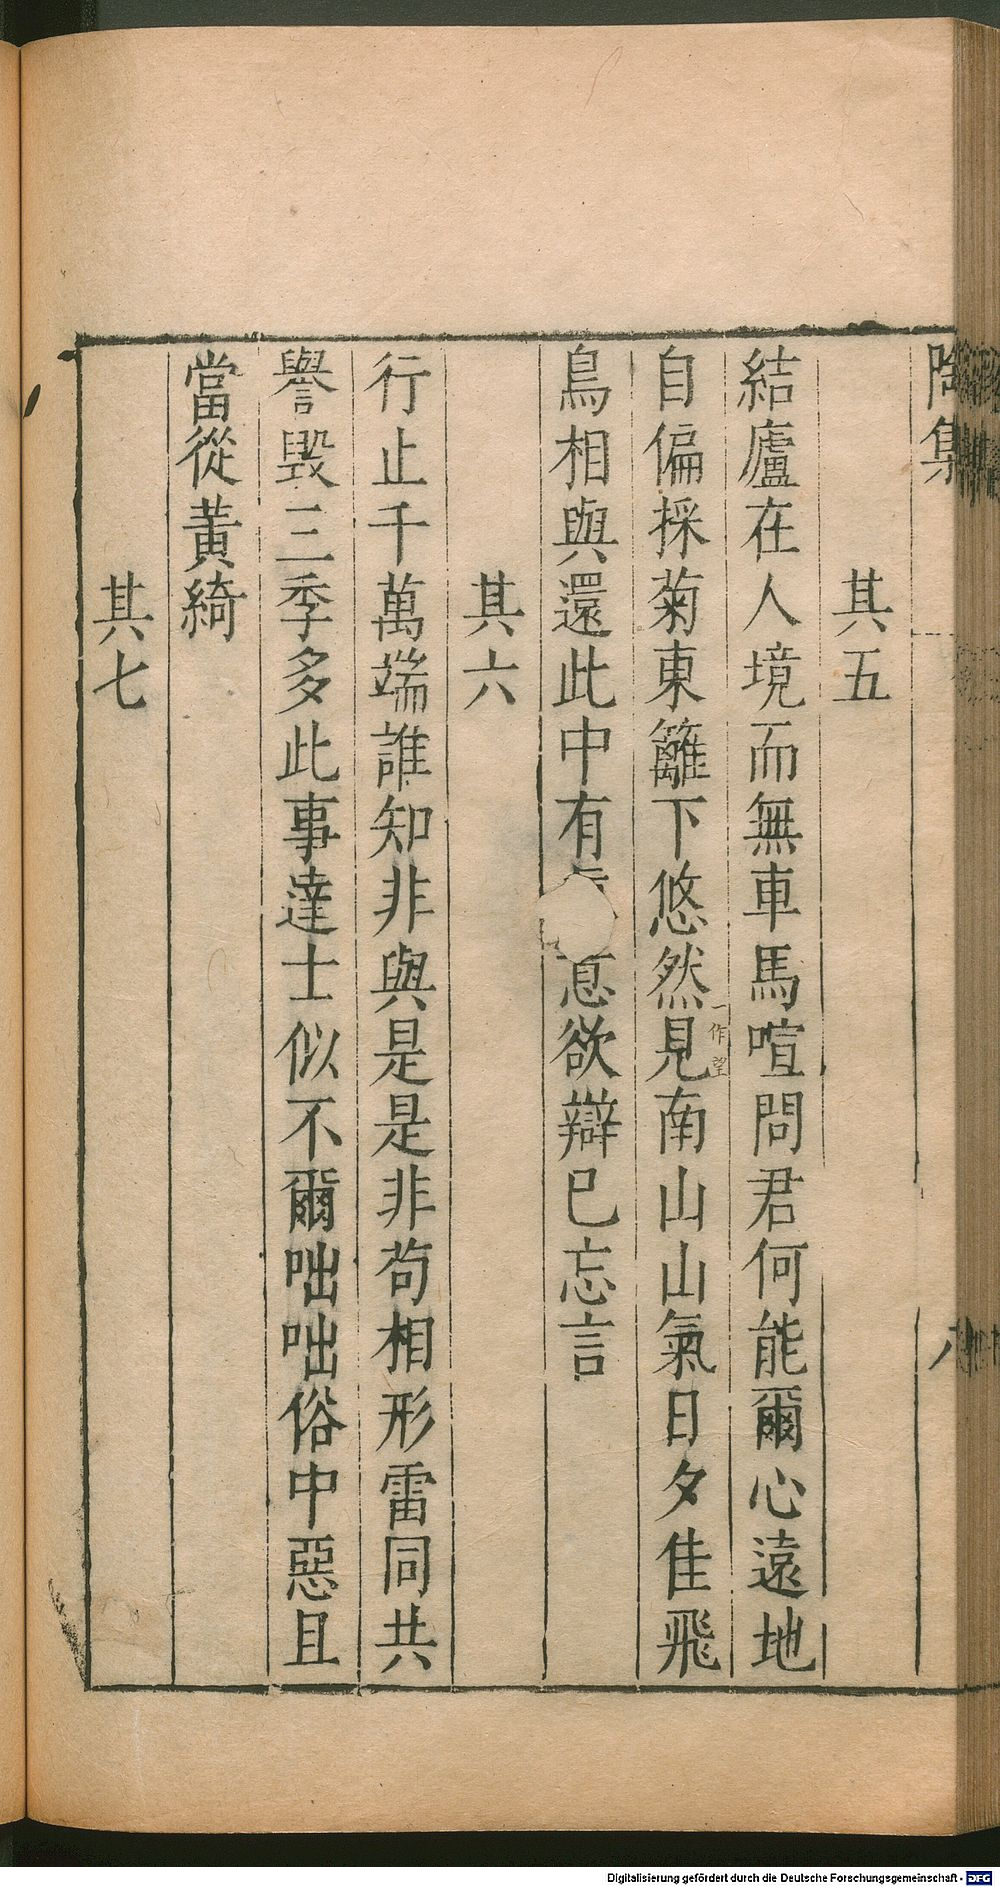 陶集
其五
結廬在人境而無車馬喧問君何能爾心遠地
自偏採菊東籬下悠然見一作望南山山氣日夕佳飛
鳥相與還此中有意欲辯已忘言
其六
行止千萬端誰知非與是是非苟相形雷同共
譽毀三季多此事達士似不爾咄咄俗中惡且
當從黃綺
其七
Digitalisierung gefördert durch die Deutsche Forschungsgemeinschaft - DFG